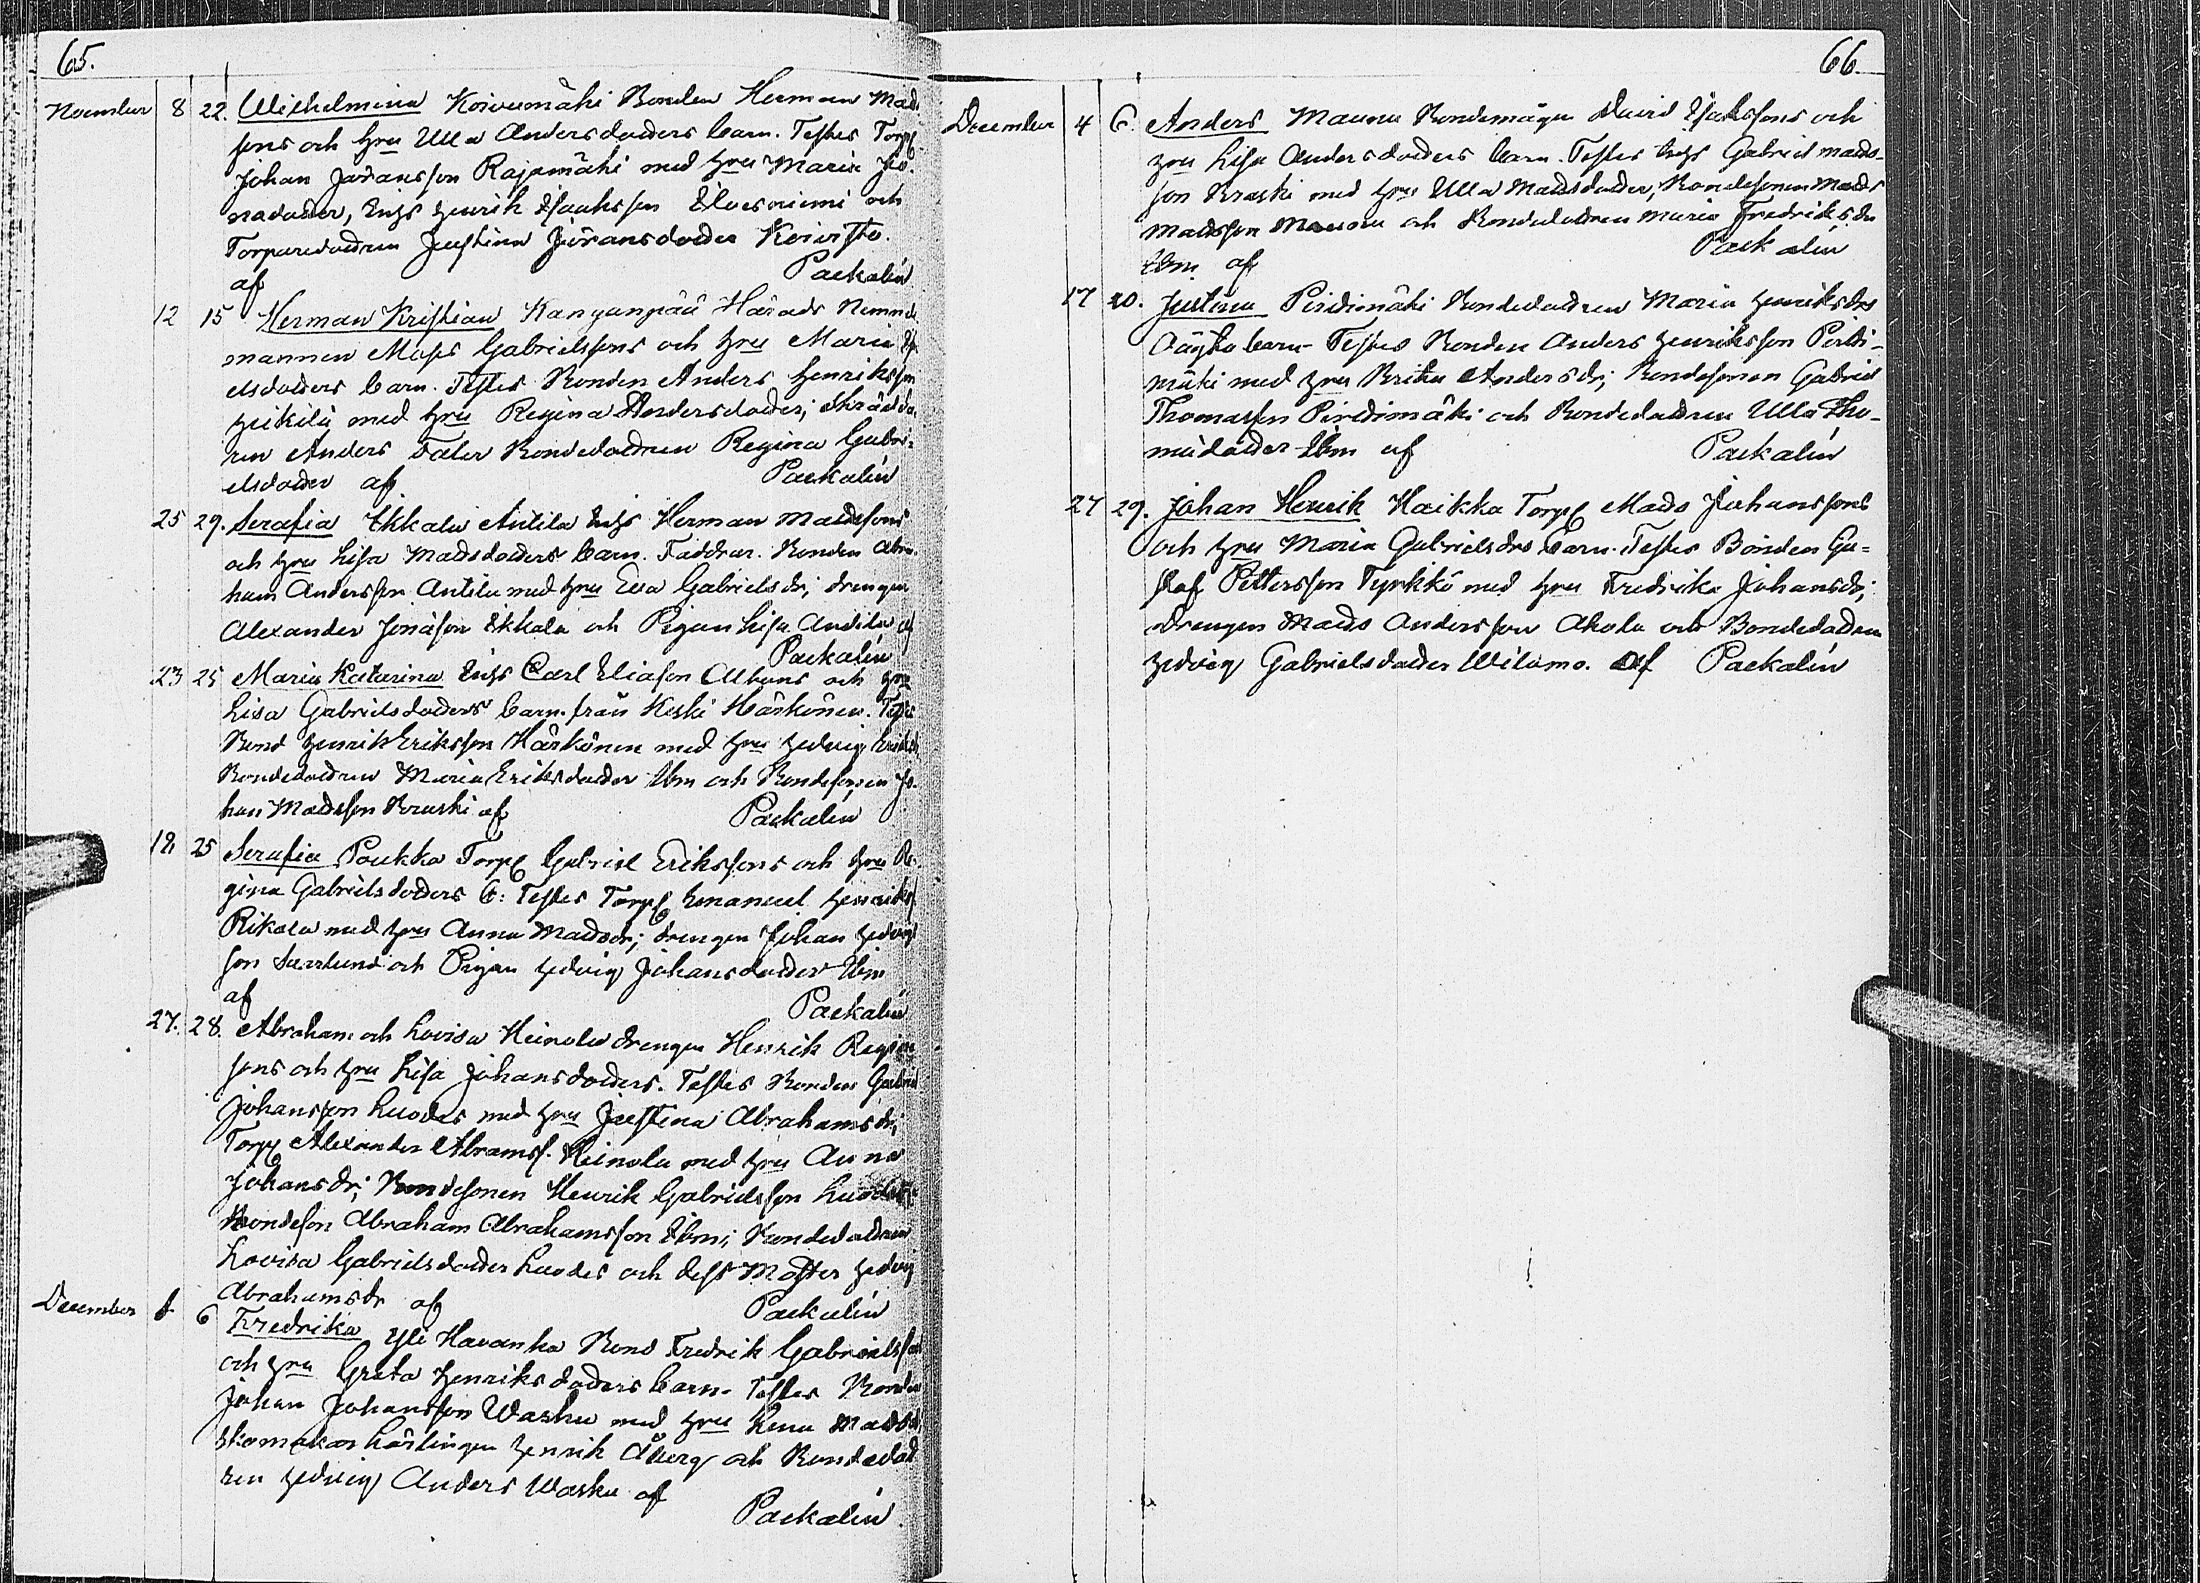 65.
November 8 22. Wilhelmina Koivumäki Bonden Herman Mad-
sons och hru Ulla Andersdotters barn. Testes Torp
Johan Jöransson Rajamäki med hru Maria Jo-
nadotter, Inhs Henrik Isaaksson Elvesniemi och
Torparedottren Justina Jöransdotter Koivisto.
af Packalén
12 15 Herman Kristian Kanganpää Härads Nemnde
mannen Moses Gabrielssons och hru Maria
elsdotters barn. Testes Bonden Anders Henriksson
Heikilä med hru Regina Andersdotter; Skrädda
ren Anders Faler Bondedottren Regina Gabri-
elsdotter af Packalén
25 29. Serafia Ekkala Antila Inhs Herman Madssons
och hru Lisa Madsdotters barn. Faddrar. Bonden Abra
ham Andersson Antila med hru Eva Gabrielsdr; drengen
Alexander Jonasson Ekkala och Pigan Lisa Andila af
Packalén
23 25 Maria Katarina Inhs Carl Eliason Albons och hru
Lisa Gabrielsdotters barn från Keski Härkönen. Testes
Bond Henrik Eriksson Härkönen med hru Hedvig Eriksdr
Bondedottren Maria Eriksdotter Ibm och Bondesonen Jo-
han Madsson Bruski af Packalén
19 25 Serafia Poukka Torp Gabriel Erikssons och hru Re-
gina Gabrielsdotters b: Testes Torp Emanuel Henriks
Rikala med hru Anna Madsdr; drengen Johan Hedvigs
son Saxlund och Pigan Hedvig Johansdotter Ibm
af Packalén
27. 28. Abraham och Lovisa Heinola drengen Henrik Regina
sons och hru Lisa Johansdotters. Testes Bonden Gabriel
Johansson Luodes med hru Justina Abrahamsdr;
Torp Alexander Abramss. Heinola med hru Anna
Johansdr; Bondesonen Henrik Gabrielsson Luodes
Bondeson Abraham Abrahamsson Ibm; Bondedottren
Lovisa Gabrielsdotter Luodes och dess Moster Hedvig
Abrahamsdr af Packalén
December 1. 6 Fredrika Yli Havanka Bond Fredrik Gabrielsson
och hru Greta Henriksdotters barn. Testes Bonden
Johan Johansson Wasku med hru Lena Madsdr
Skomakar Lärlingen Henrik Åberg och Bondedott
ren Hedvig Anders Wasku af
Packalén.
66.
December 4 6. Anders Maunu Bondemågen David Isakssons och
hru Lisa Andersdotters barn. Testes Inhs Gabriel Mads-
son Bruski med hru Ulla Madsdotter; Bondesonen Mads
Madsson Maunu och Bondedottren Maria Fredriksdr
Ibm af Packalén
17 20. Justina Piridimäki Bondedottren Maria Henriksdrs
Oägta barn Testes Bonden Anders Henriksson Perdi-
mäki med hru Brita Andersdr; Bondesonen Gabriel
Thomasson Piridimäki och Bondedottren Ulla Tho-
madotter Ibm af Packalén
27 29. Johan Henrik Haikka Torp Mads Johanssons
och hru Maria Gabrielsdrs barn. Testes Bonden Gu-
staf Pettersson Tyrkkö med hru Fredrika Johansdr;
drengen Mads Andersson Akola och Bondedottren
Hedvig Gabrielsdotter Wilamo. af Packalén